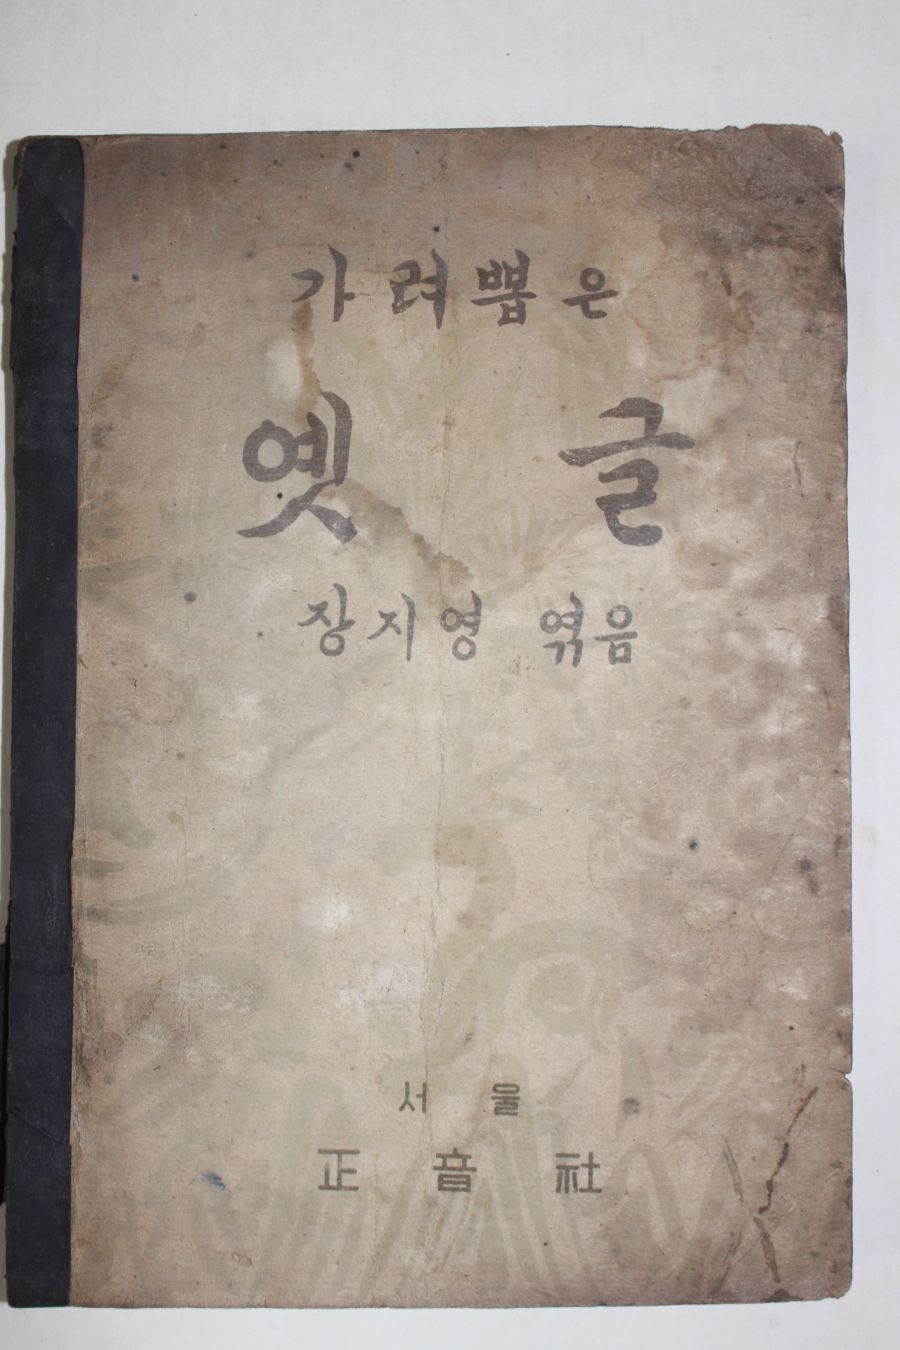 가려뽑은
옛글
장지영 엮음
서울
正音社